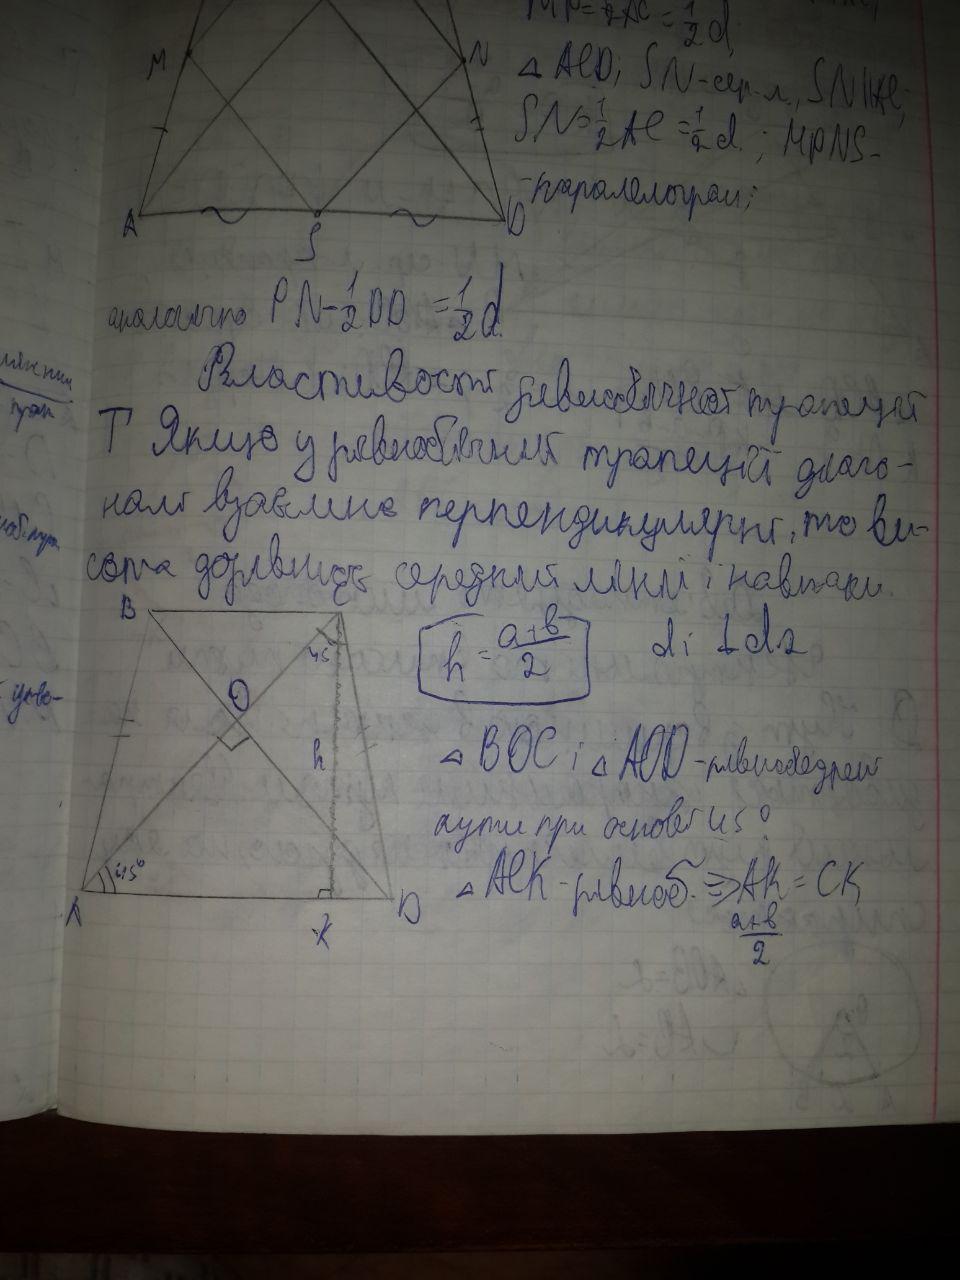 MP = 1/2 AC = 1/2 d;
M N
△ ACD; SN-сер. л., SN || AC;
SN = 1/2 AC = 1/2 d; MPNS-
-паралелограм;
A S D
аналогично PN - 1/2 BD = 1/2 d
Властивості рівнобічної трапеції
Т Якщо у рівнобічній трапеції діаго-
налі взаємно перпендикулярні, то ви-
сота дорівнює середній лінії і навпаки.
B C
45 h = a+b/2 d1 ⊥ d2
O
h △ BOC і △ AOD-рівнобедрені
кути при основі 45°
45° △ ACK-рівноб. => AK = CK
A K D a+b/2